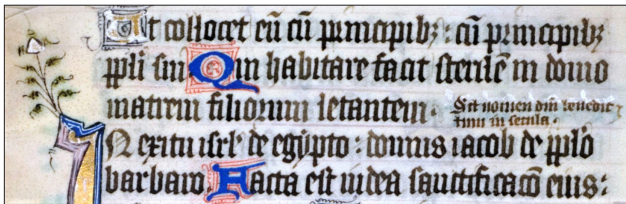 Ut collocet eū cū principibꝫ : cū principibꝫ
ppli sui Qui habitare facit sterilē in domo
matrem filiorum letantem. Sit nomen dñi benedic
tum in secula.
In exitu isrl̄ de egypto : domus iacob de pplō
barbaro. Facta est iudea sanctificacō eius :